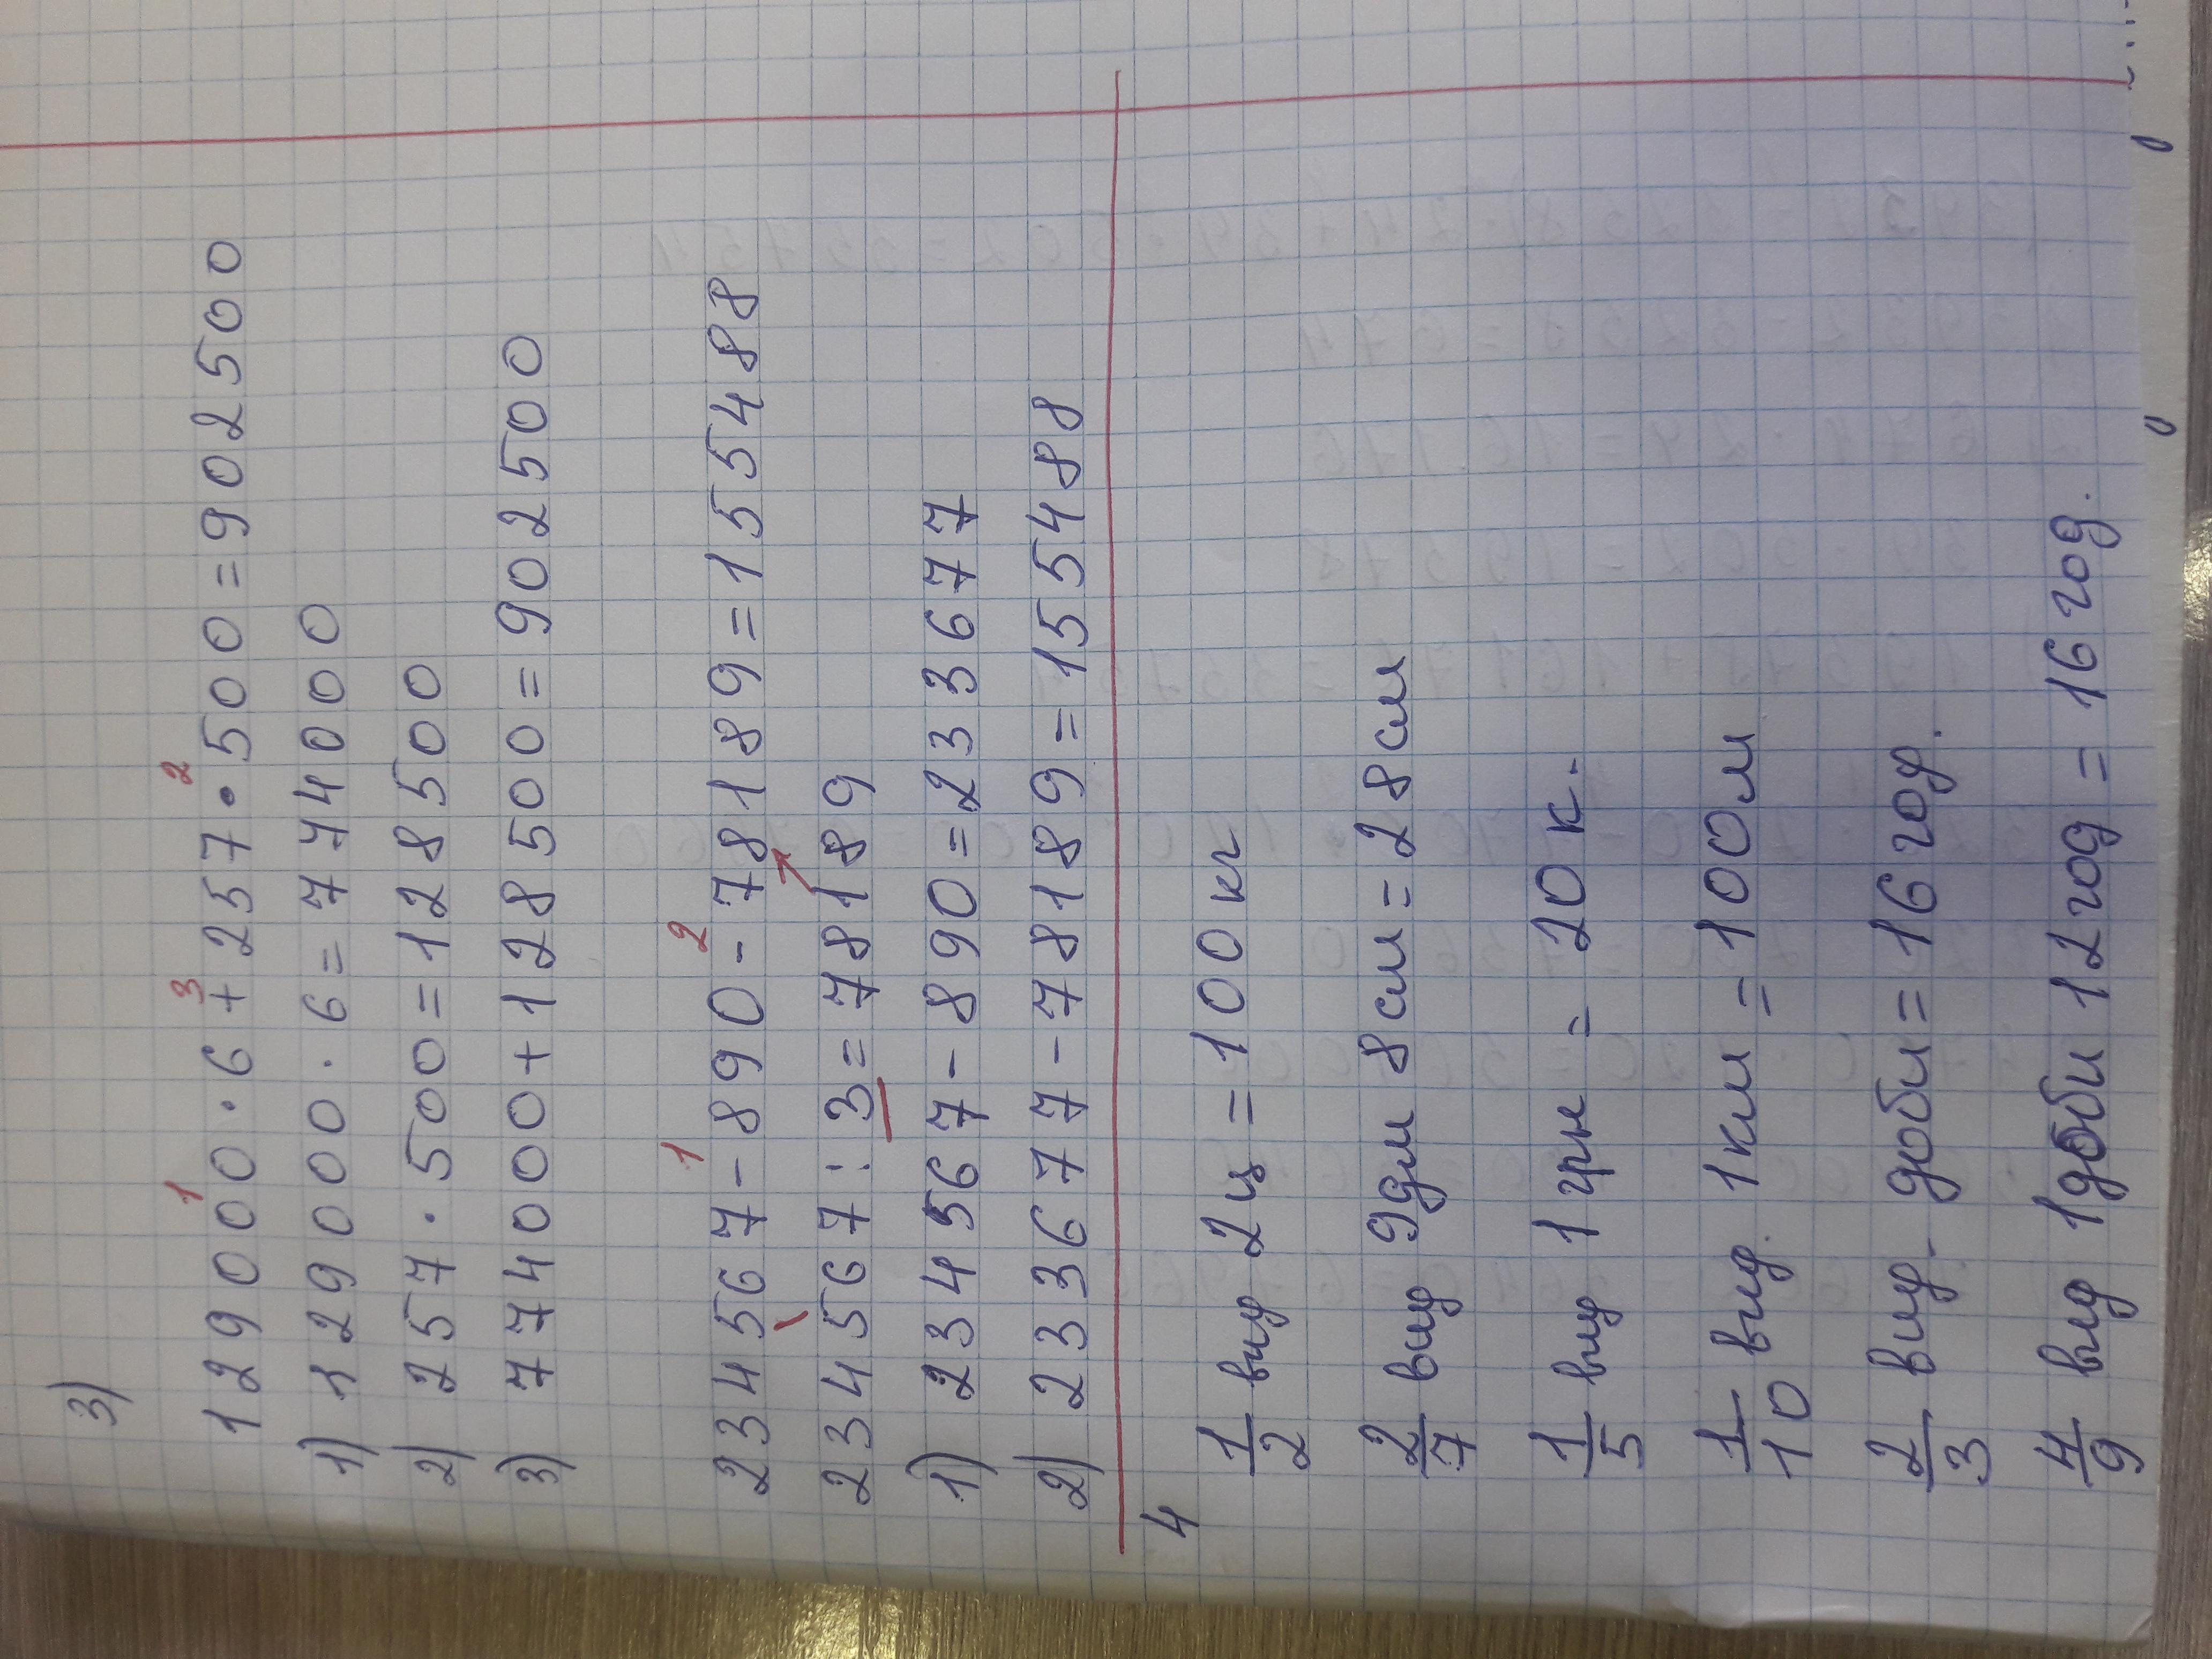 3)
129000·6+257·500=902500
1 3 2
1) 129000·6=774000
2) 257·500=128500
3) 774000+128500=902500
1 2
234567-890-78189=155488
234567:3=78189
1) 234567-890=233677
2) 233677-78189=155488
4
1/2 вид 2ц=100кг
2/7 вид 9дм 8см=28см
1/5 вид 1грн = 20к.
1/10 вид. 1км = 100м
2/3 вид. доби=16год.
4/9 вид 1доби 12год=16год.